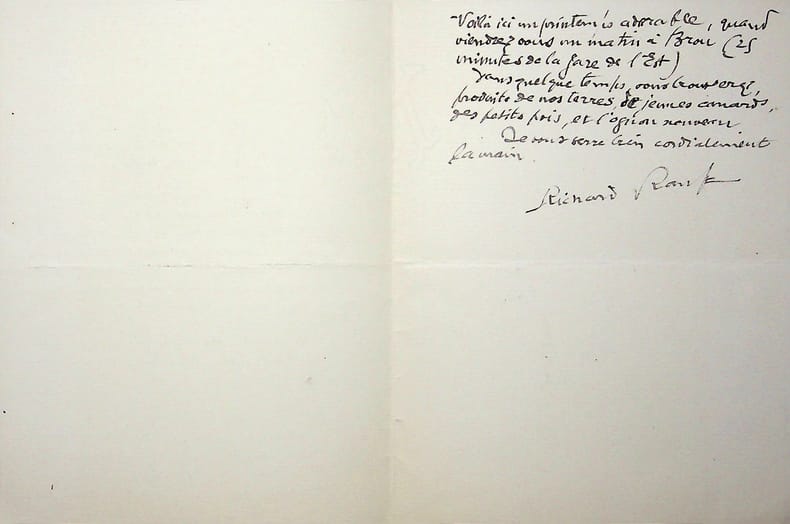 Voilà ici un printemps adorable, quand
viendrez vous un matin à Brou (25
minutes de la gare de l'Est)
Dans quelque temps, vous trouverez,
produits de nos terres, de jeunes canards,
des petits pois, et l'ognon nouveau
Je vous serre bien cordialement
la main.
Richard Ranft